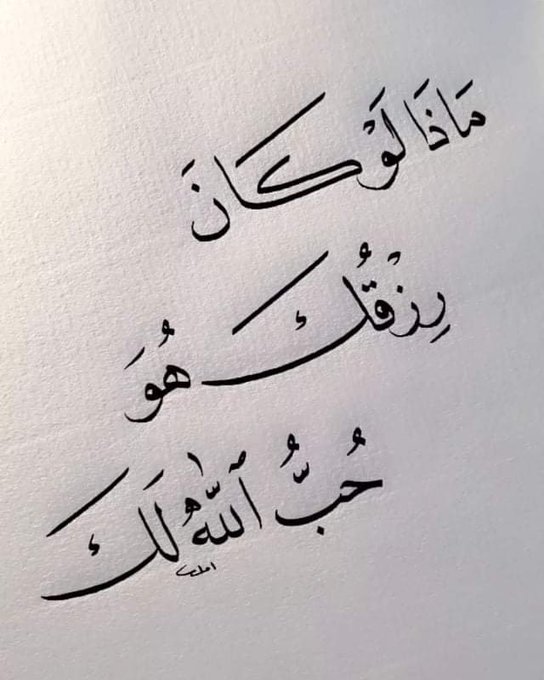 مَاذَا لَوْ كَانَ
رِزْقُكَ هُوَ
حُبُّ ٱللَّٰهُ لَكَ